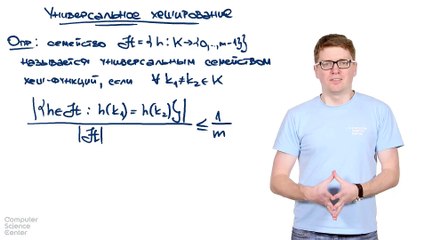 Универсальное хеширование
Опр: семейство ℋ = {h: K→{0,..,m-1}}
называется универсальным семейством
хеш-функций, если ∀ k₁≠k₂∈K
|{h∈ℋ : h(k₁)=h(k₂)}|
/ |ℋ| ≤ 1/m
Computer
Science
Center